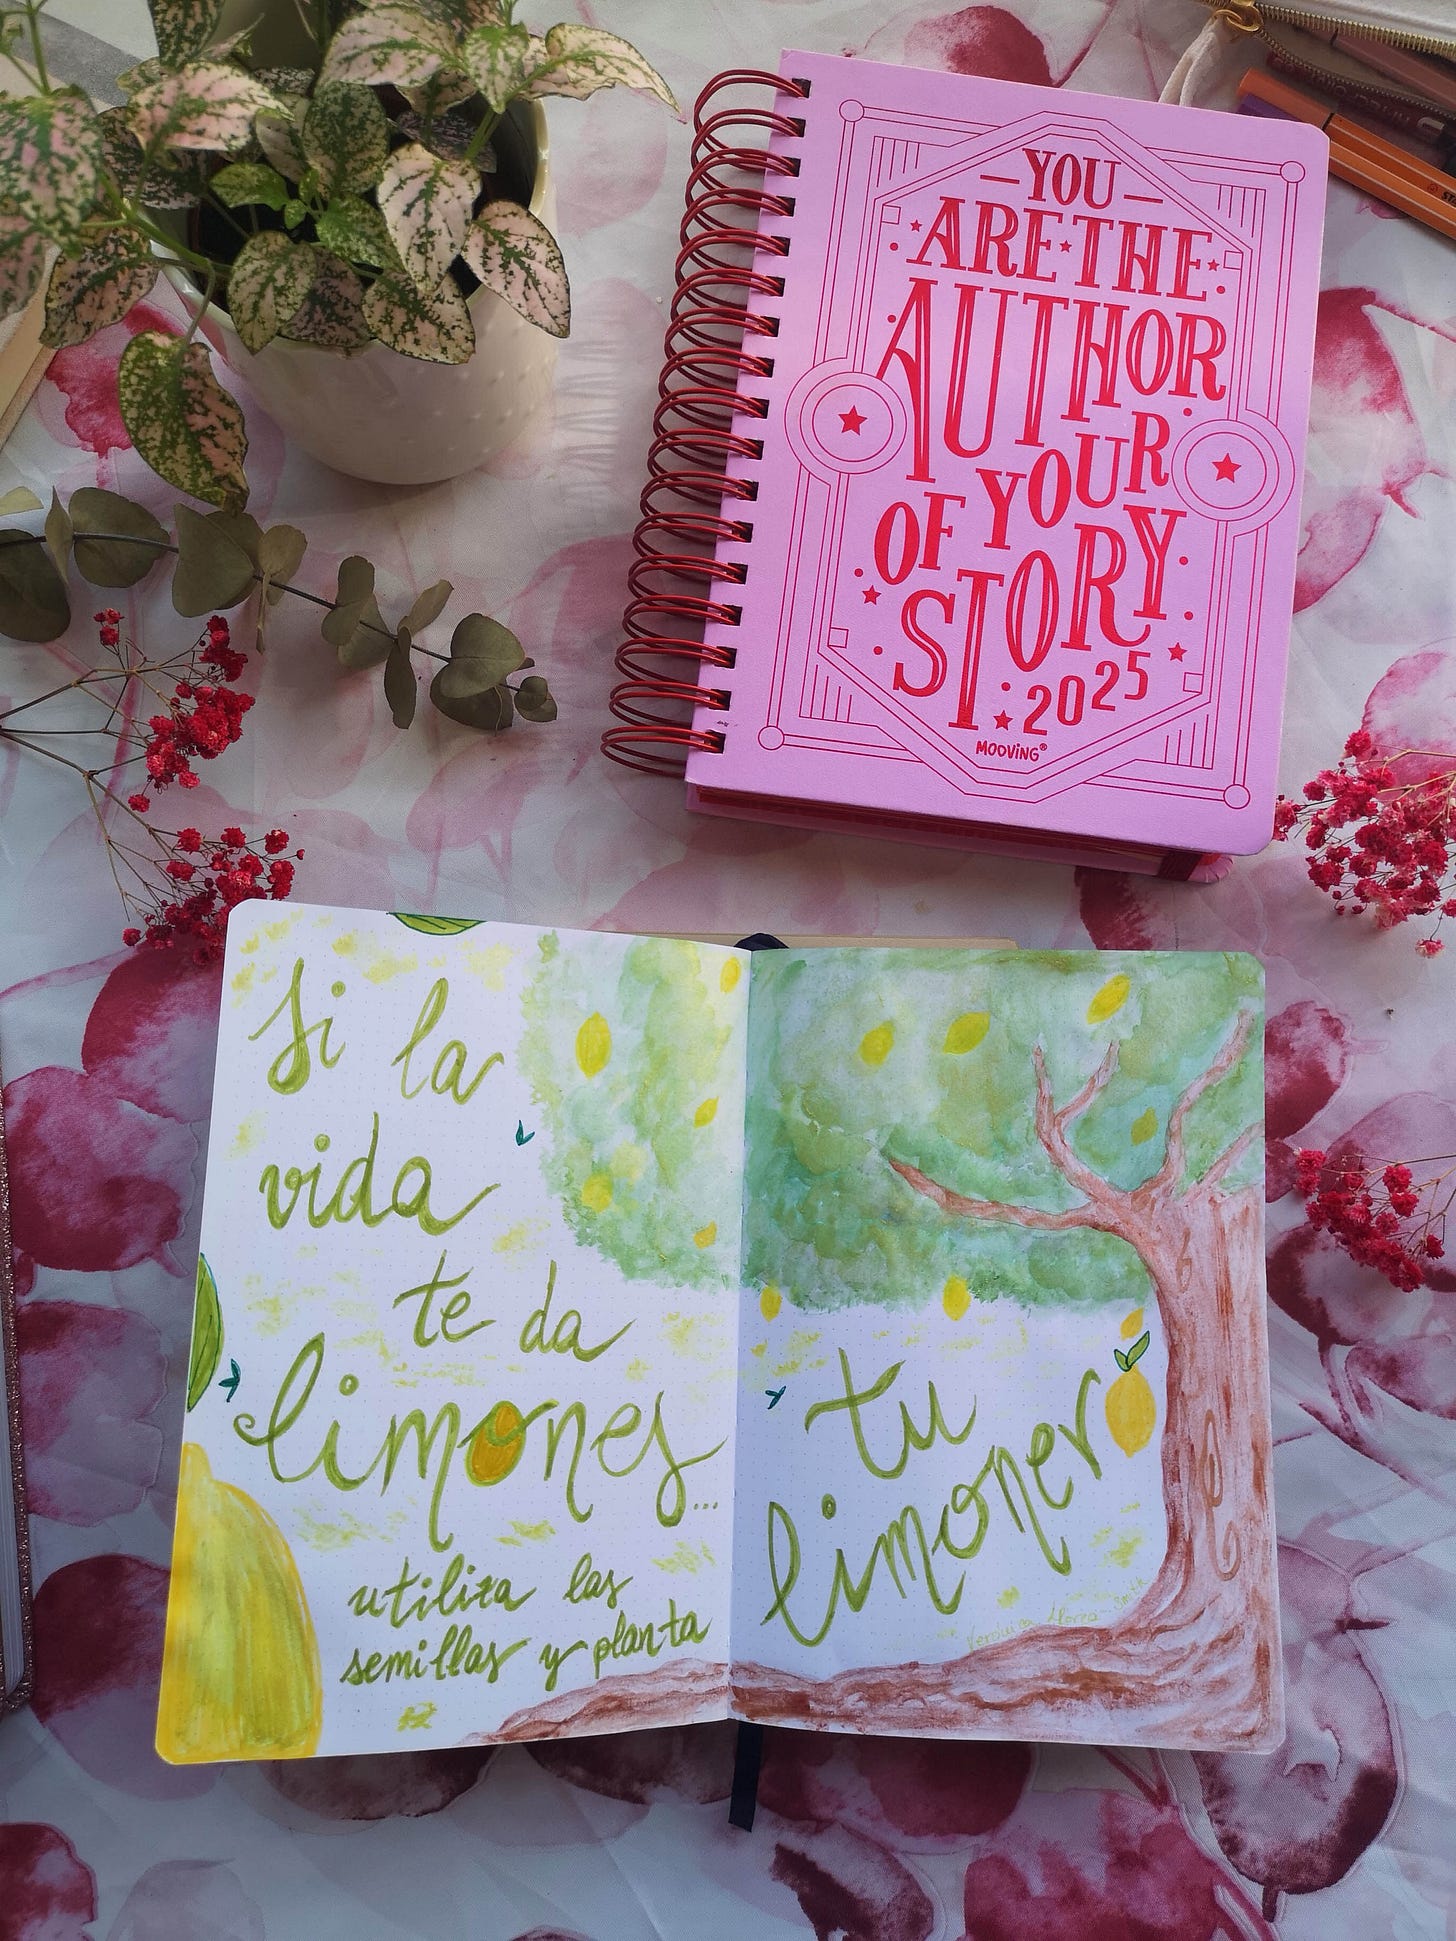 YOU
ARE THE
AUTHOR
OF YOUR
STORY
2025
MOOVING®
Si la
vida
te da
limones...
utiliza las
semillas y planta
tu
limonero
Verónica Llorca-Smith